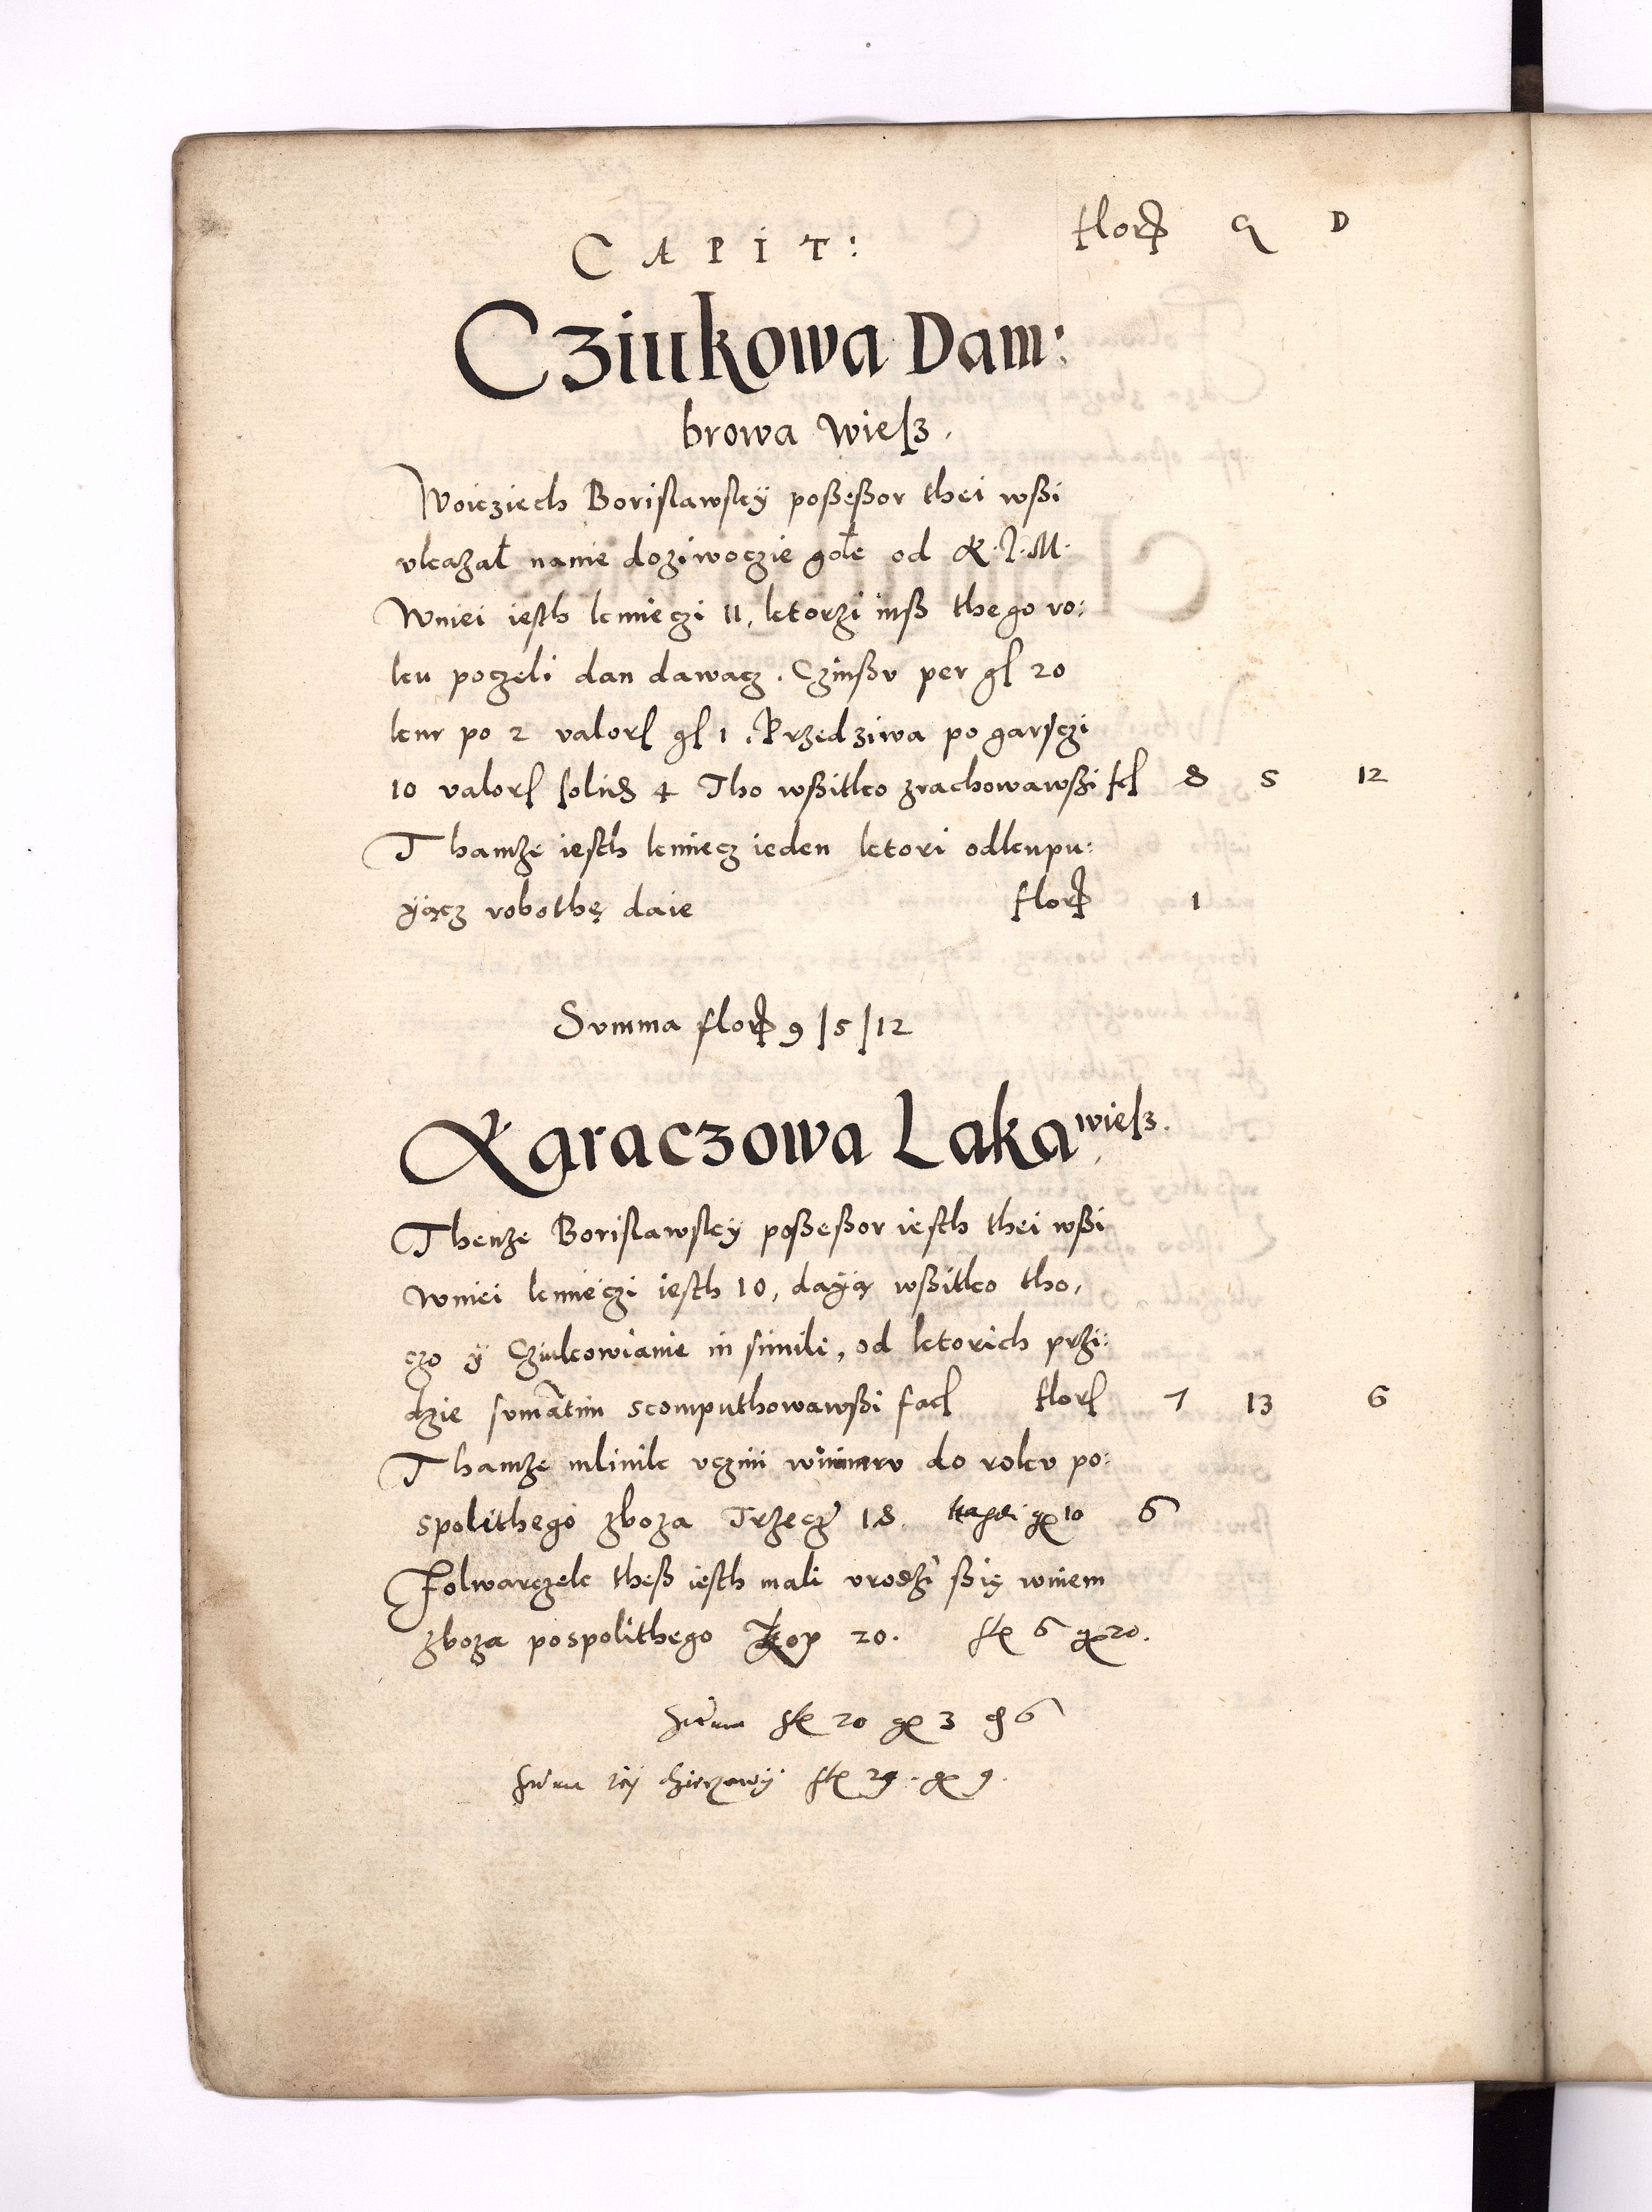 CAPIT: flor G D
Cziukowa Dam:
browa Wiesz.
Woicziech Borislawsky poßeßor thei wßi
vkazał na nie doziwoczie gołe od K. J. M.
Wniei iesth kmieczi 11, ktorzi inß thego ro:
ku poczeli dan dawacz. Czinßu per gs 20
kur po 2 valors gs 1. Przedziwa po garsczi
10 valors solid 4 Tho wßitko zrachowawßi fcs 8 5 12
Thamze iesth kmiecz ieden ktori odkupu:
yącz robothę daie flor 1
Summa flor 9/5/12
Karaczowa Laka wiesz.
Thenze Borislawsky poßeßor iesth thei wßi
Wniei kmieczi iesth 10, dayą wßitko tho,
czo y Cziukowianie in simili, od ktorich przi:
dzie sumatim scomputhowawßi facs flors 7 13 6
Thamze mlinik vczini do roku po:
spolithego zboza Trzecz 18. gr 10 6
Folwarczek theß iesth mali vrodzi ßię wniem
zboza pospolithego Kop 20. fl 6 gr 20.
Suma fl 20 gr 3 d 6
Suma tey dzierzawy fl 29. gr 9.